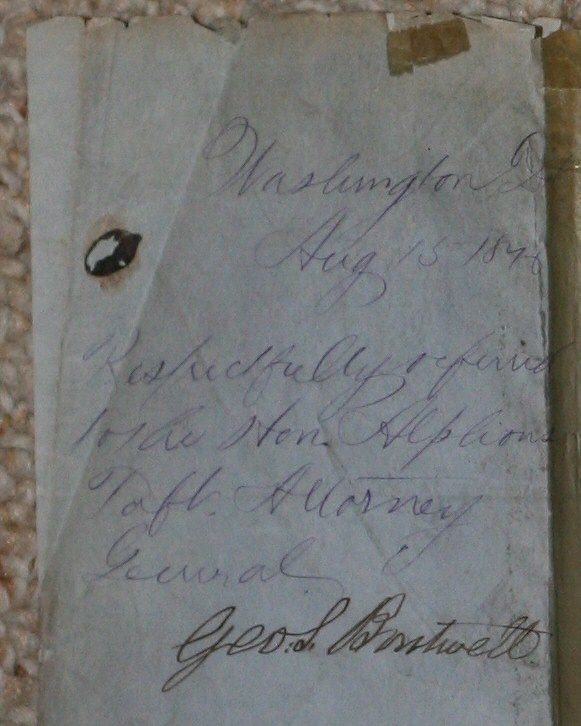 Washington D
Aug 15 1876
Respectfully referred
to the Hon. Alphons
Taft. Attorney
General
Geo. S. Boutwell